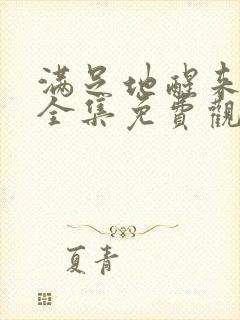 满足地醒来
全集免費觀
夏青